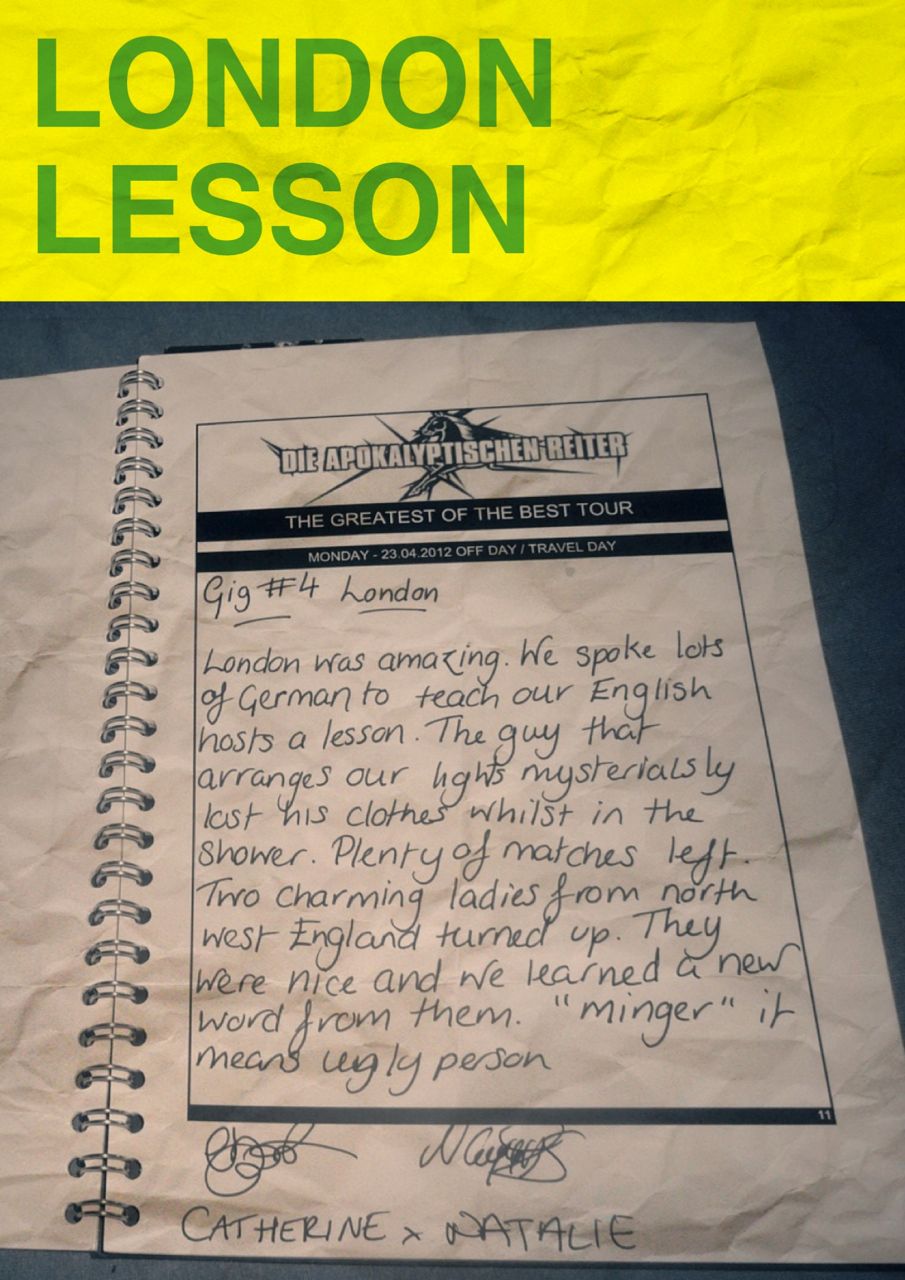 LONDON
LESSON
DIE APOKALYPTISCHEN REITER
THE GREATEST OF THE BEST TOUR
MONDAY - 23.04.2012 OFF DAY / TRAVEL DAY
Gig #4 London
London was amazing. We spoke lots
of German to teach our English
hosts a lesson. The guy that
arranges our lights mysterialsly
lost his clothes whilst in the
shower. Plenty of matches left.
Two charming ladies from north
west England turned up. They
were nice and we learned a new
word from them. "minger" it
means ugly person
11
CATHERINE x NATALIE